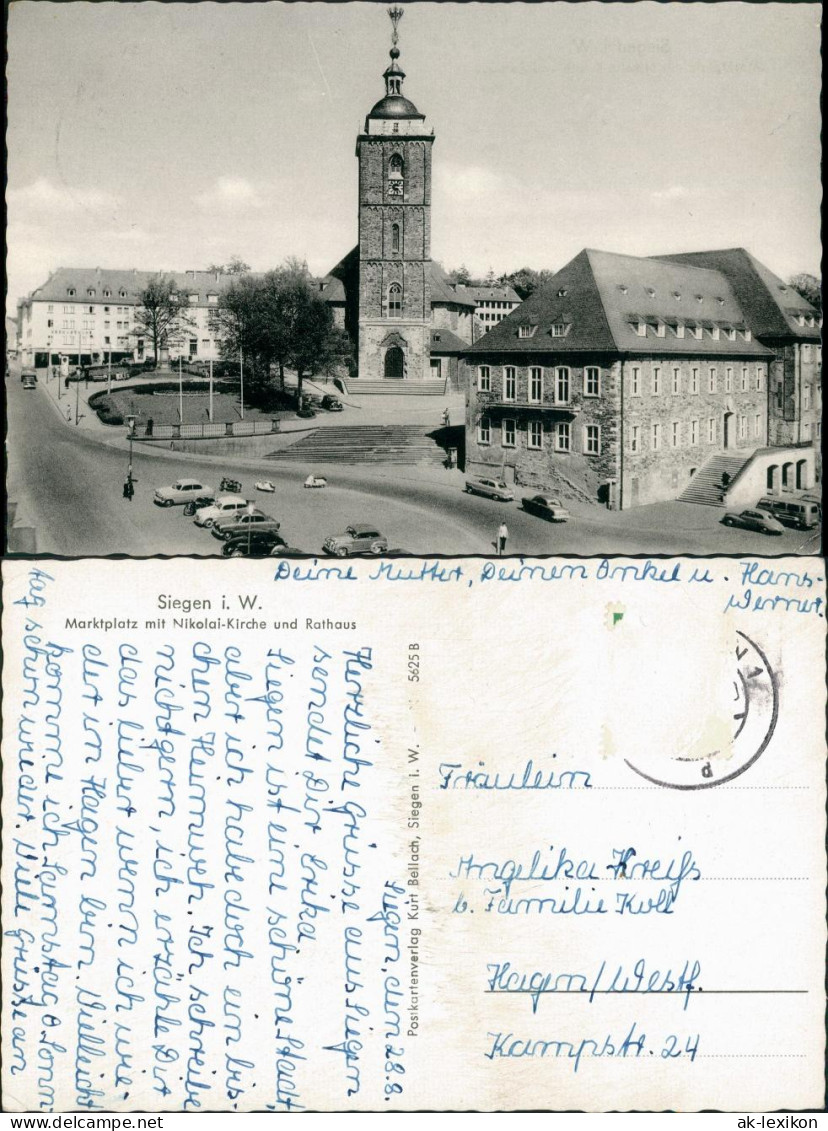 Siegen i. W.
Marktplatz mit Nikolai-Kirche und Rathaus
Siegen, den 28.8.
Herzliche Grüsse aus Siegen
sendet Dir Erika.
Siegen ist eine schöne Stadt,
aber ich habe doch ein bis-
chen Heimweh. Ich schreibe
nicht gern, ich erzähle Dir
das lieber wenn ich wie-
der in Hagen bin. Vielleicht
komme ich Samstag o Sonn-
tag schon wieder. Viele Grüsse an
Deine Mutter, Deinen Onkel u. Hans-
Werner.
5625 B
Postkartenverlag Kurt Bellach, Siegen i. W.
Fräulein
Angelika Kreiß
b. Familie Koll
Hagen/Westf.
Kampstr. 24
ak-lexikon
ak-lexikon.com